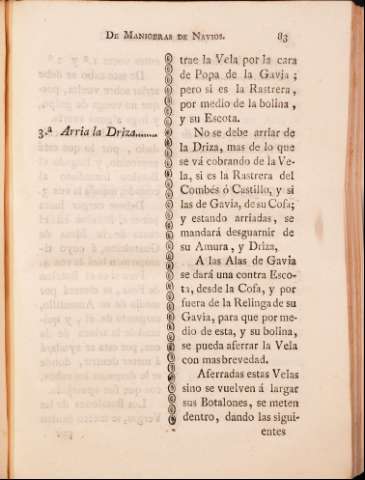 DE MANIOBRAS DE NAVIOS. 83
trae la Vela por la cara
de Popa de la Gavia ;
pero si es la Rastrera,
por medio de la bolina ,
y su Escota.
3.ª Arria la Driza........ No se debe arriar de
la Driza, mas de lo que
se vá cobrando de la Ve-
la, si es la Rastrera del
Combés ó Castillo, y si
las de Gavia, de su Cofa;
y estando arriadas, se
mandará desguarnir de
su Amura, y Driza,
A las Alas de Gavia
se dará una contra Esco-
ta, desde la Cofa, y por
fuera de la Relinga de su
Gavia, para que por me-
dio de esta, y su bolina,
se pueda aferrar la Vela
con mas brevedad.
Aferradas estas Velas
sino se vuelven á largar
sus Botalones, se meten
dentro, dando las sigui-
entes